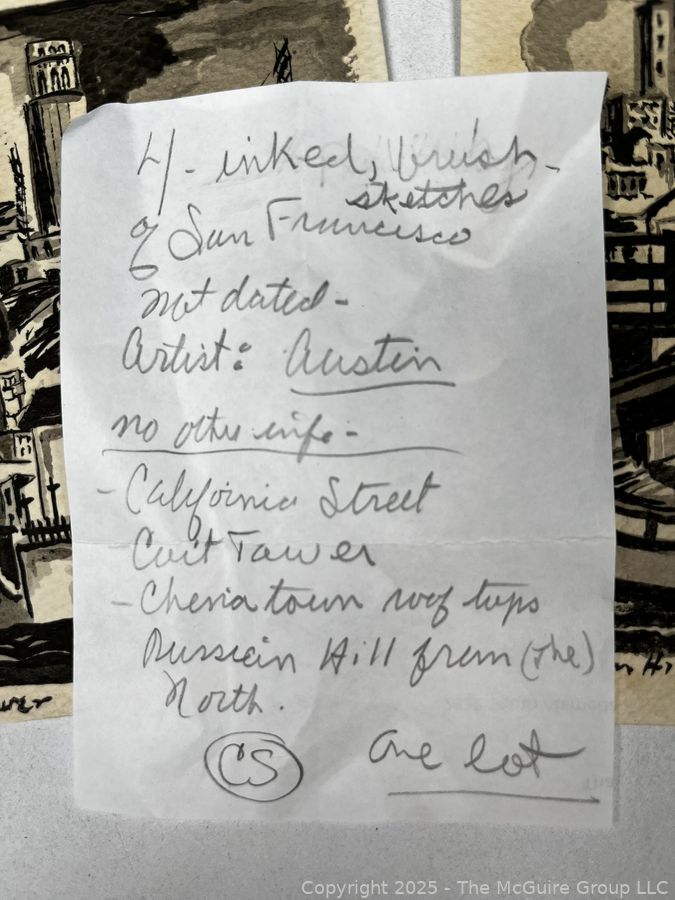 4 - inked, brush -
sketches
of San Francisco
not dated -
Artist: Austin
no other info -
- California Street
Coit Tower
- Chenatown roof tops
Russian Hill from (the)
North.
CS
One lot
wer
n Hi
Copyright 2025 - The McGuire Group LLC